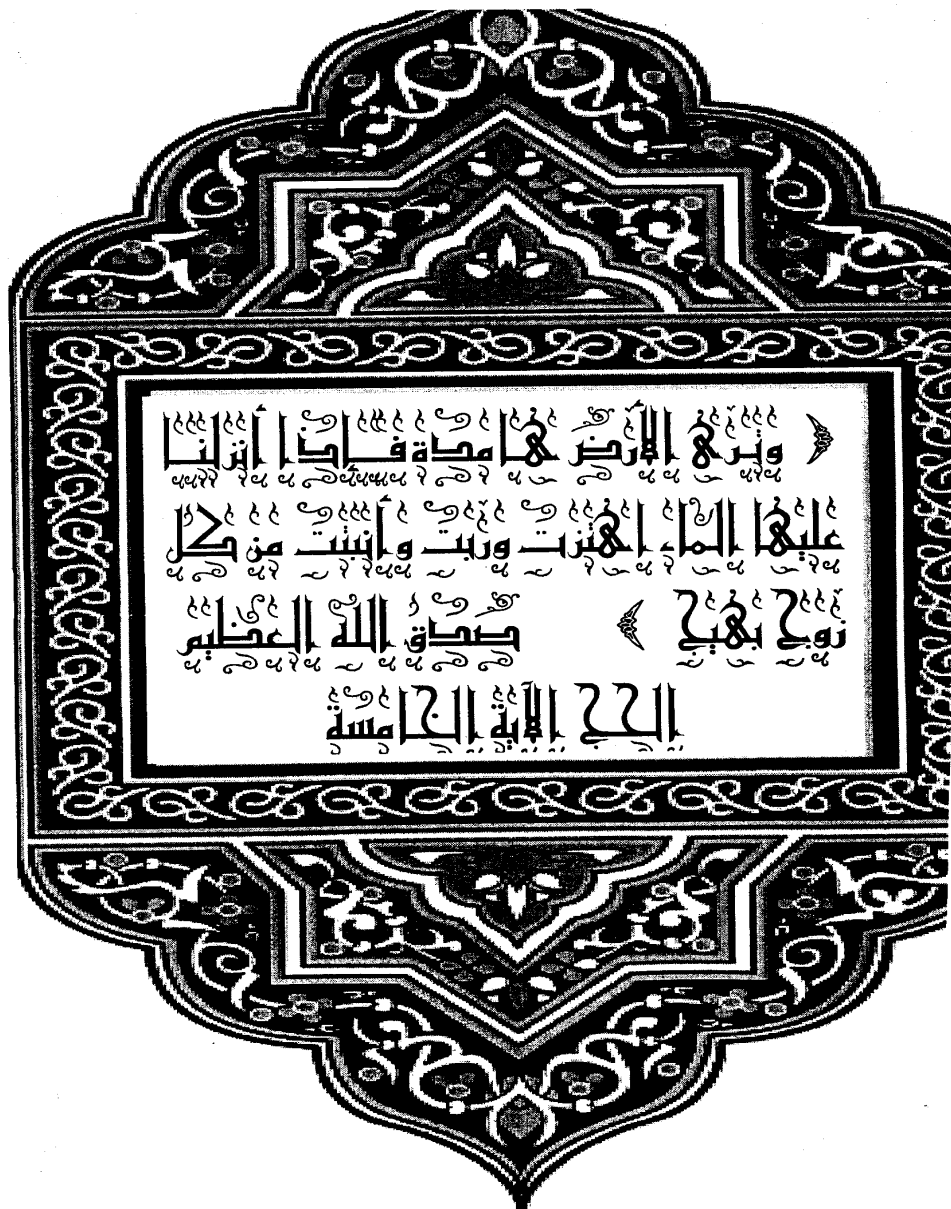 ﴿ وترى الأرض هامدة فإذا أنزلنا
عليها الماء اهتزت وربت وأنبتت من كل
زوج بهيج ﴾ صدق الله العظيم
الحج الآية الخامسة